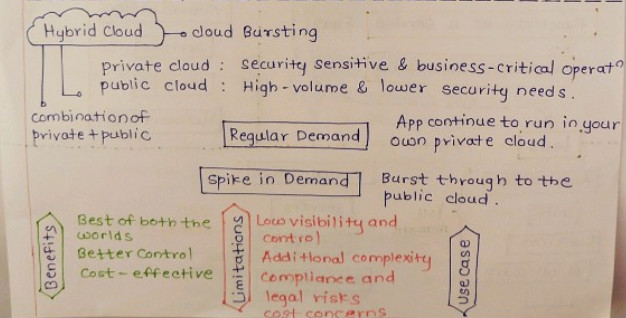 Hybrid Cloud
cloud Bursting
private cloud : security sensitive & business-critical operatn
public cloud : High-volume & lower security needs.
combination of
private + public
Regular Demand
App continue to run in your
own private cloud.
Spike in Demand
Burst through to the
public cloud.
Benefits
Best of both the
worlds
Better Control
Cost-effective
Limitations
Low visibility and
control
Additional complexity
compliance and
legal risks
cost concerns
Use Case